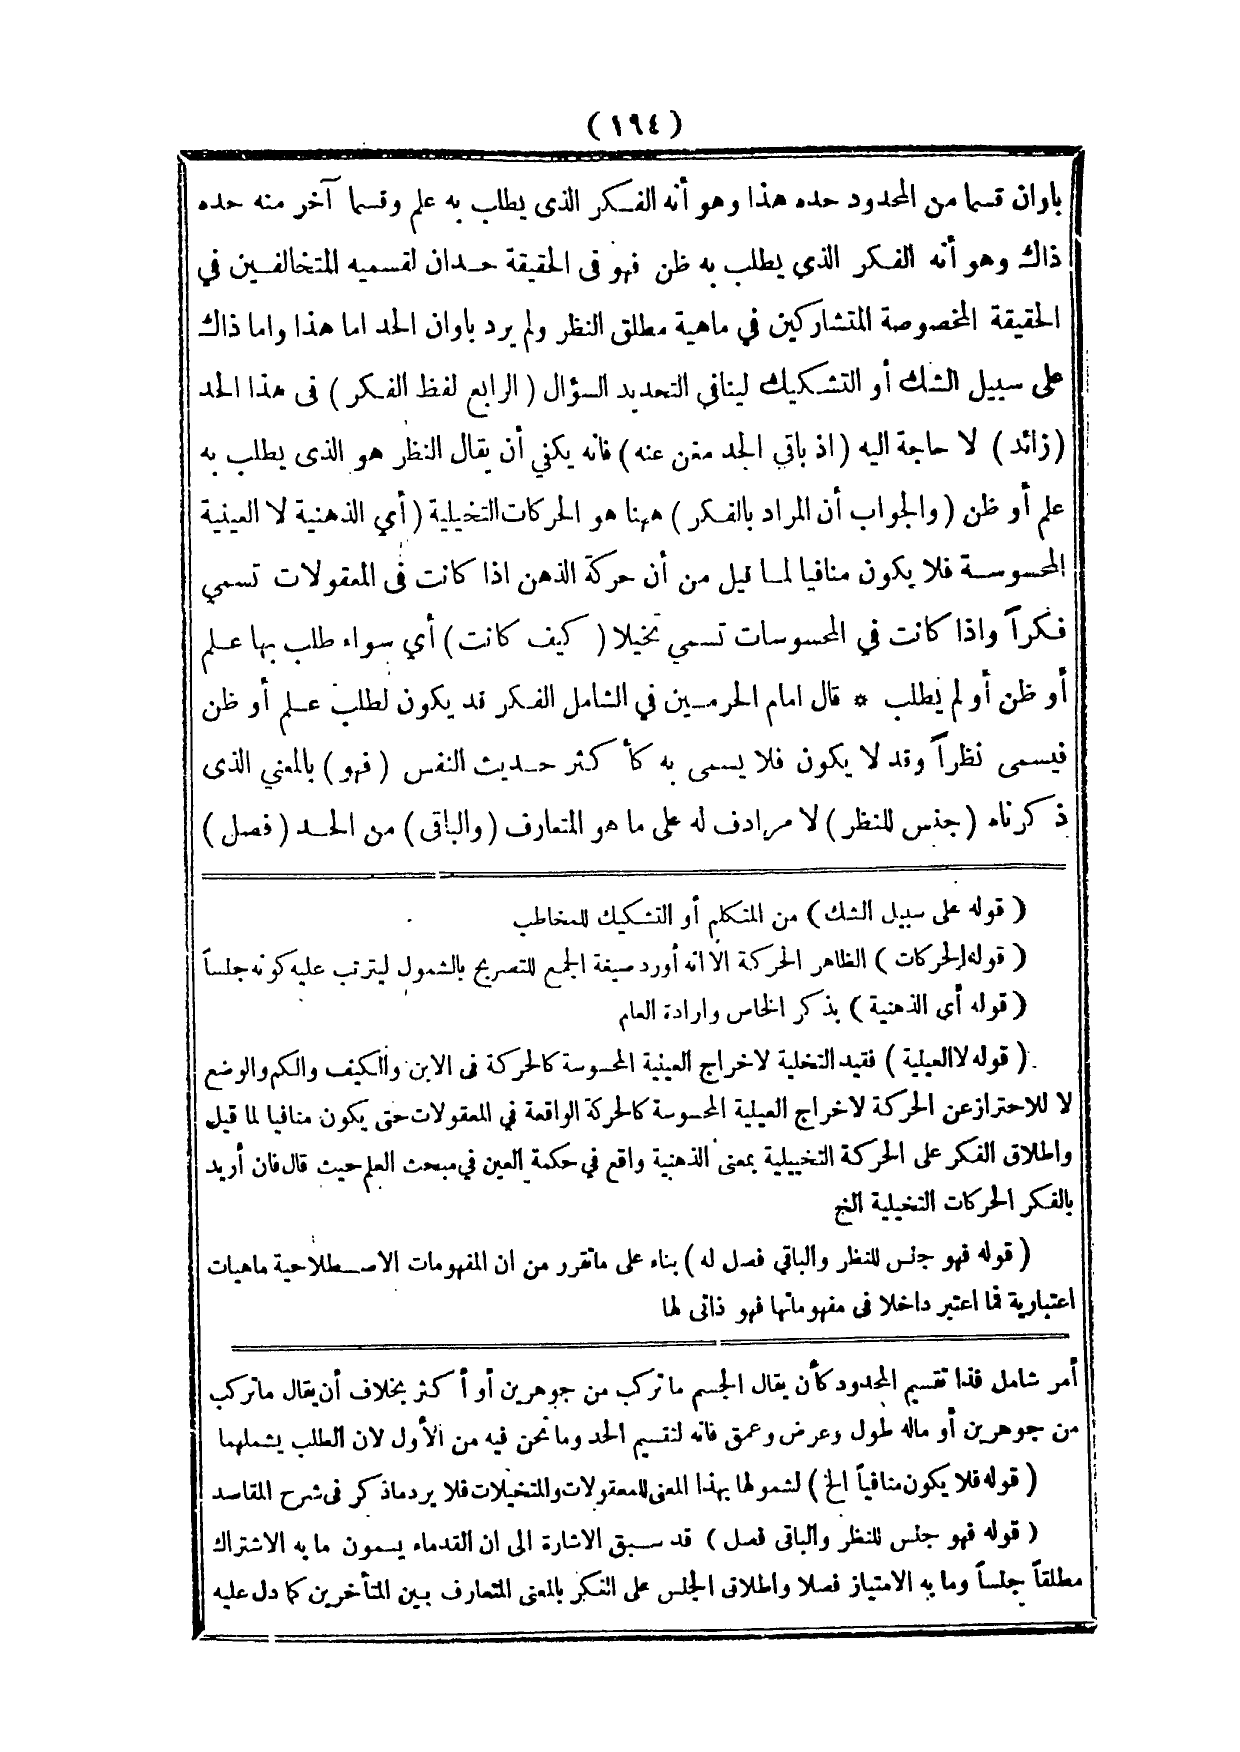 (١٩٤)
باوان قسما من المحدود حده هذا وهو أنه الفكر الذى يطلب به علم وقسما آخر منه حده
ذاك وهو أنه الفكر الذي يطلب به ظن فهو فى الحقيقة حدان لقسميه المتخالفين في
الحقيقة المخصوصة المتشاركين في ماهية مطلق النظر ولم يرد باوان الحد اما هذا واما ذاك
على سبيل الشك أو التشكيك لينافي التحديد السؤال ( الرابع لفظ الفكر ) فى هذا الحد
(زائد) لا حاجة اليه (اذ باقي الحد مغن عنه) فانه يكفي أن يقال النظر هو الذى يطلب به
علم أو ظن (والجواب أن المراد بالفكر ) ههنا هو الحركات التخيلية (أي الذهنية لا العينية
المحسوسة فلا يكون منافيا لما قيل من أن حركة الذهن اذا كانت فى المعقولات تسمي
فكراً واذا كانت في المحسوسات تسمي تخيلا ( كيف كانت) أي سواء طلب بها علم
أو ظن أو لم يطلب * قال امام الحرمين في الشامل الفكر قد يكون لطلب علم أو ظن
فيسمى نظراً وقد لا يكون فلا يسمى به كأكثر حديث النفس (فهو) بالمعني الذى
ذكرناه (جنس للنظر) لا مرادف له على ما هو المتعارف (والباقى) من الحد (فصل)
( قوله على سبيل الشك) من المتكلم أو التشكيك للمخاطب
( قوله الحركات ) الظاهر الحركة الا انه أورد صيغة الجمع للتصريح بالشمول ليترتب عليه كونه جنساً
( قوله أى الذهنية ) بذكر الخاص وارادة العام
( قوله لا العينية ) فقيد التخلية لاخراج العينية المحسوسة كالحركة فى الاين والكيف والكم والوضع
لا للاحتراز عن الحركة لاخراج العينية المحسوسة كالحركة الواقعة في المعقولات حتى يكون منافيا لما قيل
واطلاق الفكر على الحركة التخييلية بمعنى الذهنية واقع في حكمة العين في مبحث العلم حيث قال فان أريد
بالفكر الحركات التخيلية الخ
( قوله فهو جنس للنظر والباقي فصل له ) بناء على ماتقرر من ان المفهومات الاصطلاحية ماهيات
اعتبارية فما اعتبر داخلا فى مفهوماتها فهو ذاتى لها
أمر شامل فذا تقسيم المحدود كأن يقال الجسم ما تركب من جوهرين أو أكثر بخلاف أن يقال ماتركب
من جوهرين أو ماله طول وعرض وعمق فانه لتقسيم الحد وما نحن فيه من الأول لان الطلب يشملهما
( قوله فلا يكون منافياً الخ ) لشمولها بهذا المعنى للمعقولات والمتخيلات فلا يرد ماذكر فى شرح المقاصد
( قوله فهو جنس للنظر والباقى فصل ) قد سبق الاشارة الى ان القدماء يسمون ما به الاشتراك
مطلقاً جنساً وما به الامتياز فصلا واطلاق الجنس على الفكر بالمعنى المتعارف بين المتأخرين كما دل عليه